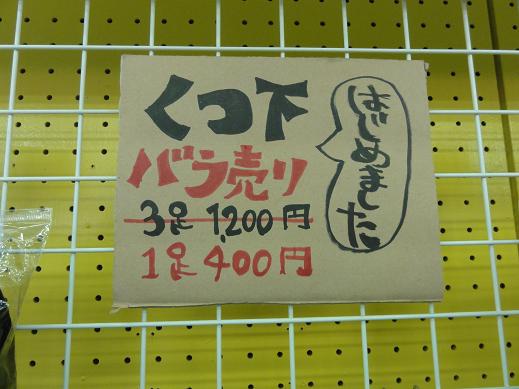 くつ下
バラ売り
3足 1,200円
1足 400円
はじめました